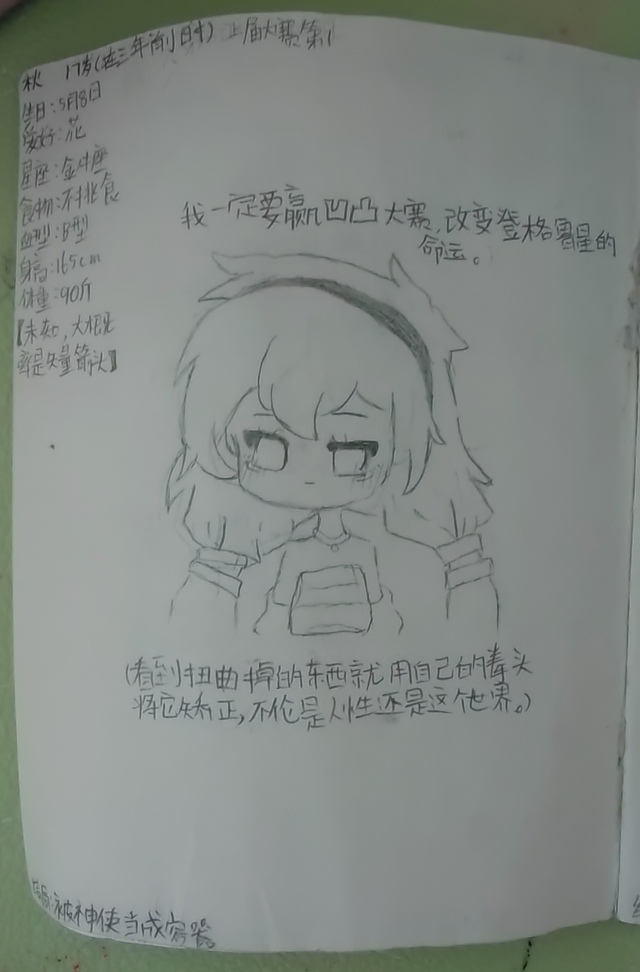 秋 17岁(在三年前时) 上届大赛第1
生日:5月8日
爱好:花
星座:金牛座
食物:不挑食
血型:B型
身高:165cm
体重:90斤
【未知,大概
率是矢量箭头】
我一定要赢凹凸大赛,改变登格鲁星的
命运。
(看到扭曲掉的东西就用自己的拳头
将它矫正,不伦是人性还是这个世界。)
结局:被神使当成容器